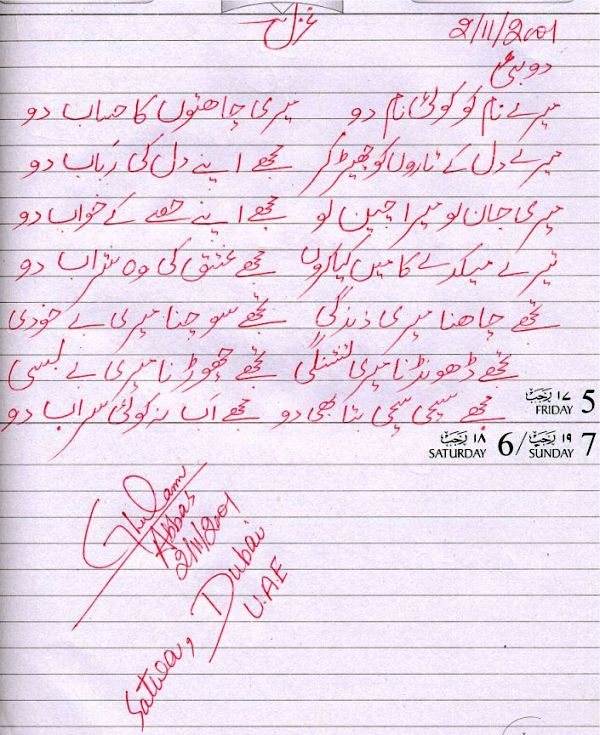 غزل
2/11/2001
دوبئی
میرے نام کو کوئی نام دو میری چاھتوں کا حساب دو
میرے دل کے تاروں کو چھیڑ کر مجھے اپنے دل کی رَباب دو
میری جان لو میرا چین لو مجھے اپنے حصے کے خواب دو
تیرے میکدے کا میں کیا کروں مجھے عشق کی وہ شراب دو
تجھے چاھنا میری زندگی تجھے سوچنا میری بے خودی
تجھے ڈھونڈنا میری تشنگی تجھے چھوڑنا میری بے بسی
مجھے سچی سچی بتا بھی دو مجھے اَب نہ کوئی سراب دو
١٧ رجب 5
FRIDAY
١٨ رجب 6/ ١٩ رجب 7
SATURDAY SUNDAY
Ghulam
Abbas
2/11/2001
Satwa, Dubai
U.A.E